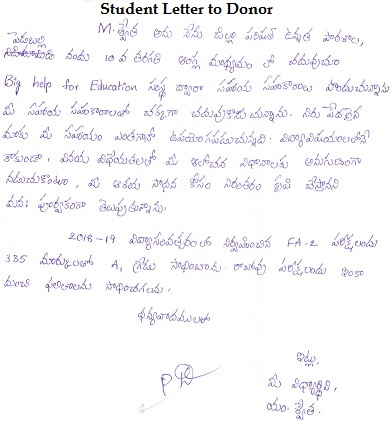 Student Letter to Donor
M. శ్వేత అను నేను జిల్లా పరిషత్ ఉన్నత పాఠశాల,
పెదబల్లి
నందు 10 వ తరగతి ఆంగ్ల మాధ్యమం లో చదువుచూ
Big help for Education సంస్థ ద్వారా సహాయ సహకారాలు పొందుచున్నాను
మీ సహాయ సహకారాలతో చక్కగా చదువుకొనుచున్నాను. నిరు పేదలైన
మాకు మీ సహాయం ఎంతగానో ఉపయోగపడుచున్నది. విద్యావిషయాలలోనే
కాకుండా, వినయ విధేయతలతో మీ ఆలోచన విధానాలకు అనుగుణంగా
నడుచుకొంటూ, మీ ఆశయ సాధన కోసం నిరంతరం కృషి చేస్తానని
మనః పూర్వకంగా తెలుపుతున్నాను.
2018-19 విద్యాసంవత్సరంలో నిర్వహించిన FA-2 పరీక్షలందు
335 మార్కులతో A, గ్రేడు సాధించాను. రాబోవు పరీక్షలందు ఇంకా
మంచి ఫలితాలను సాధించగలను.
ధన్యవాదములతో
ఇట్లు,
మీ విద్యార్థిని,
యం. శ్వేత.